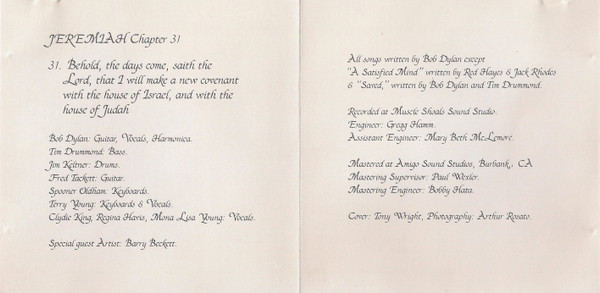 JEREMIAH Chapter 31
31. Behold, the days come, saith the
Lord, that I will make a new covenant
with the house of Israel, and with the
house of Judah
Bob Dylan: Guitar, Vocals, Harmonica.
Tim Drummond: Bass.
Jim Keltner: Drums.
Fred Tackett: Guitar.
Spooner Oldham: Keyboards.
Terry Young: Keyboards & Vocals.
Clydie King, Regina Havis, Mona Lisa Young: Vocals.
Special guest Artist: Barry Beckett.
All songs written by Bob Dylan except
"A Satisfied Mind" written by Red Hayes & Jack Rhodes
& "Saved," written by Bob Dylan and Tim Drummond.
Recorded at Muscle Shoals Sound Studio.
Engineer: Gregg Hamm.
Assistant Engineer: Mary Beth McLemore.
Mastered at Amigo Sound Studios, Burbank, CA
Mastering Supervisor: Paul Wexler.
Mastering Engineer: Bobby Hata.
Cover: Tony Wright, Photography: Arthur Rosato.